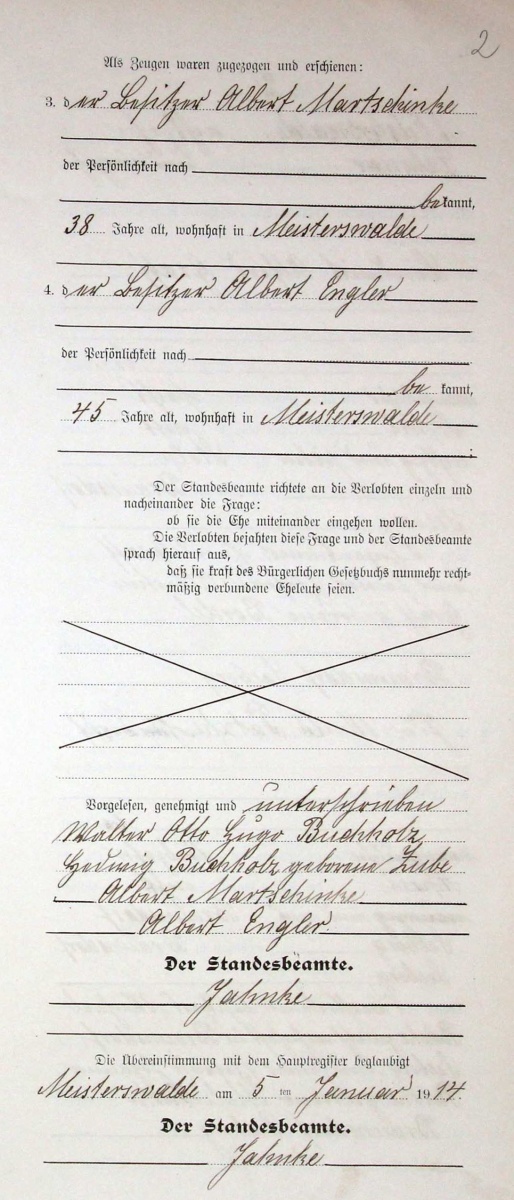 2
Als Zeugen waren zugezogen und erschienen:
3. der Besitzer Albert Martschinke
der Persönlichkeit nach
bekannt,
38 Jahre alt, wohnhaft in Meisterswalde
4. der Besitzer Albert Engler
der Persönlichkeit nach
be kannt,
45 Jahre alt, wohnhaft in Meisterswalde
;
Der Standesbeamte richtete an die Verlobten einzeln und
nacheinander die Frage:
ob sie die Ehe miteinander eingehen wollen.
Die Verlobten bejahten diese Frage und der Standesbeamte
sprach hierauf aus,
daß sie kraft des Bürgerlichen Gesetzbuchs nunmehr recht-
mäßig verbundene Eheleute seien.
Vorgelesen, genehmigt und unterschrieben
Walter Otto Hugo Buchholz
Hedwig Buchholz geborene Zube
Albert Martschinke
Albert Engler
Der Standesbeamte.
Jahnke
Die Übereinstimmung mit dem Hauptregister beglaubigt
Meisterswalde am 5 ten Januar 1914
Der Standesbeamte.
Jahnke